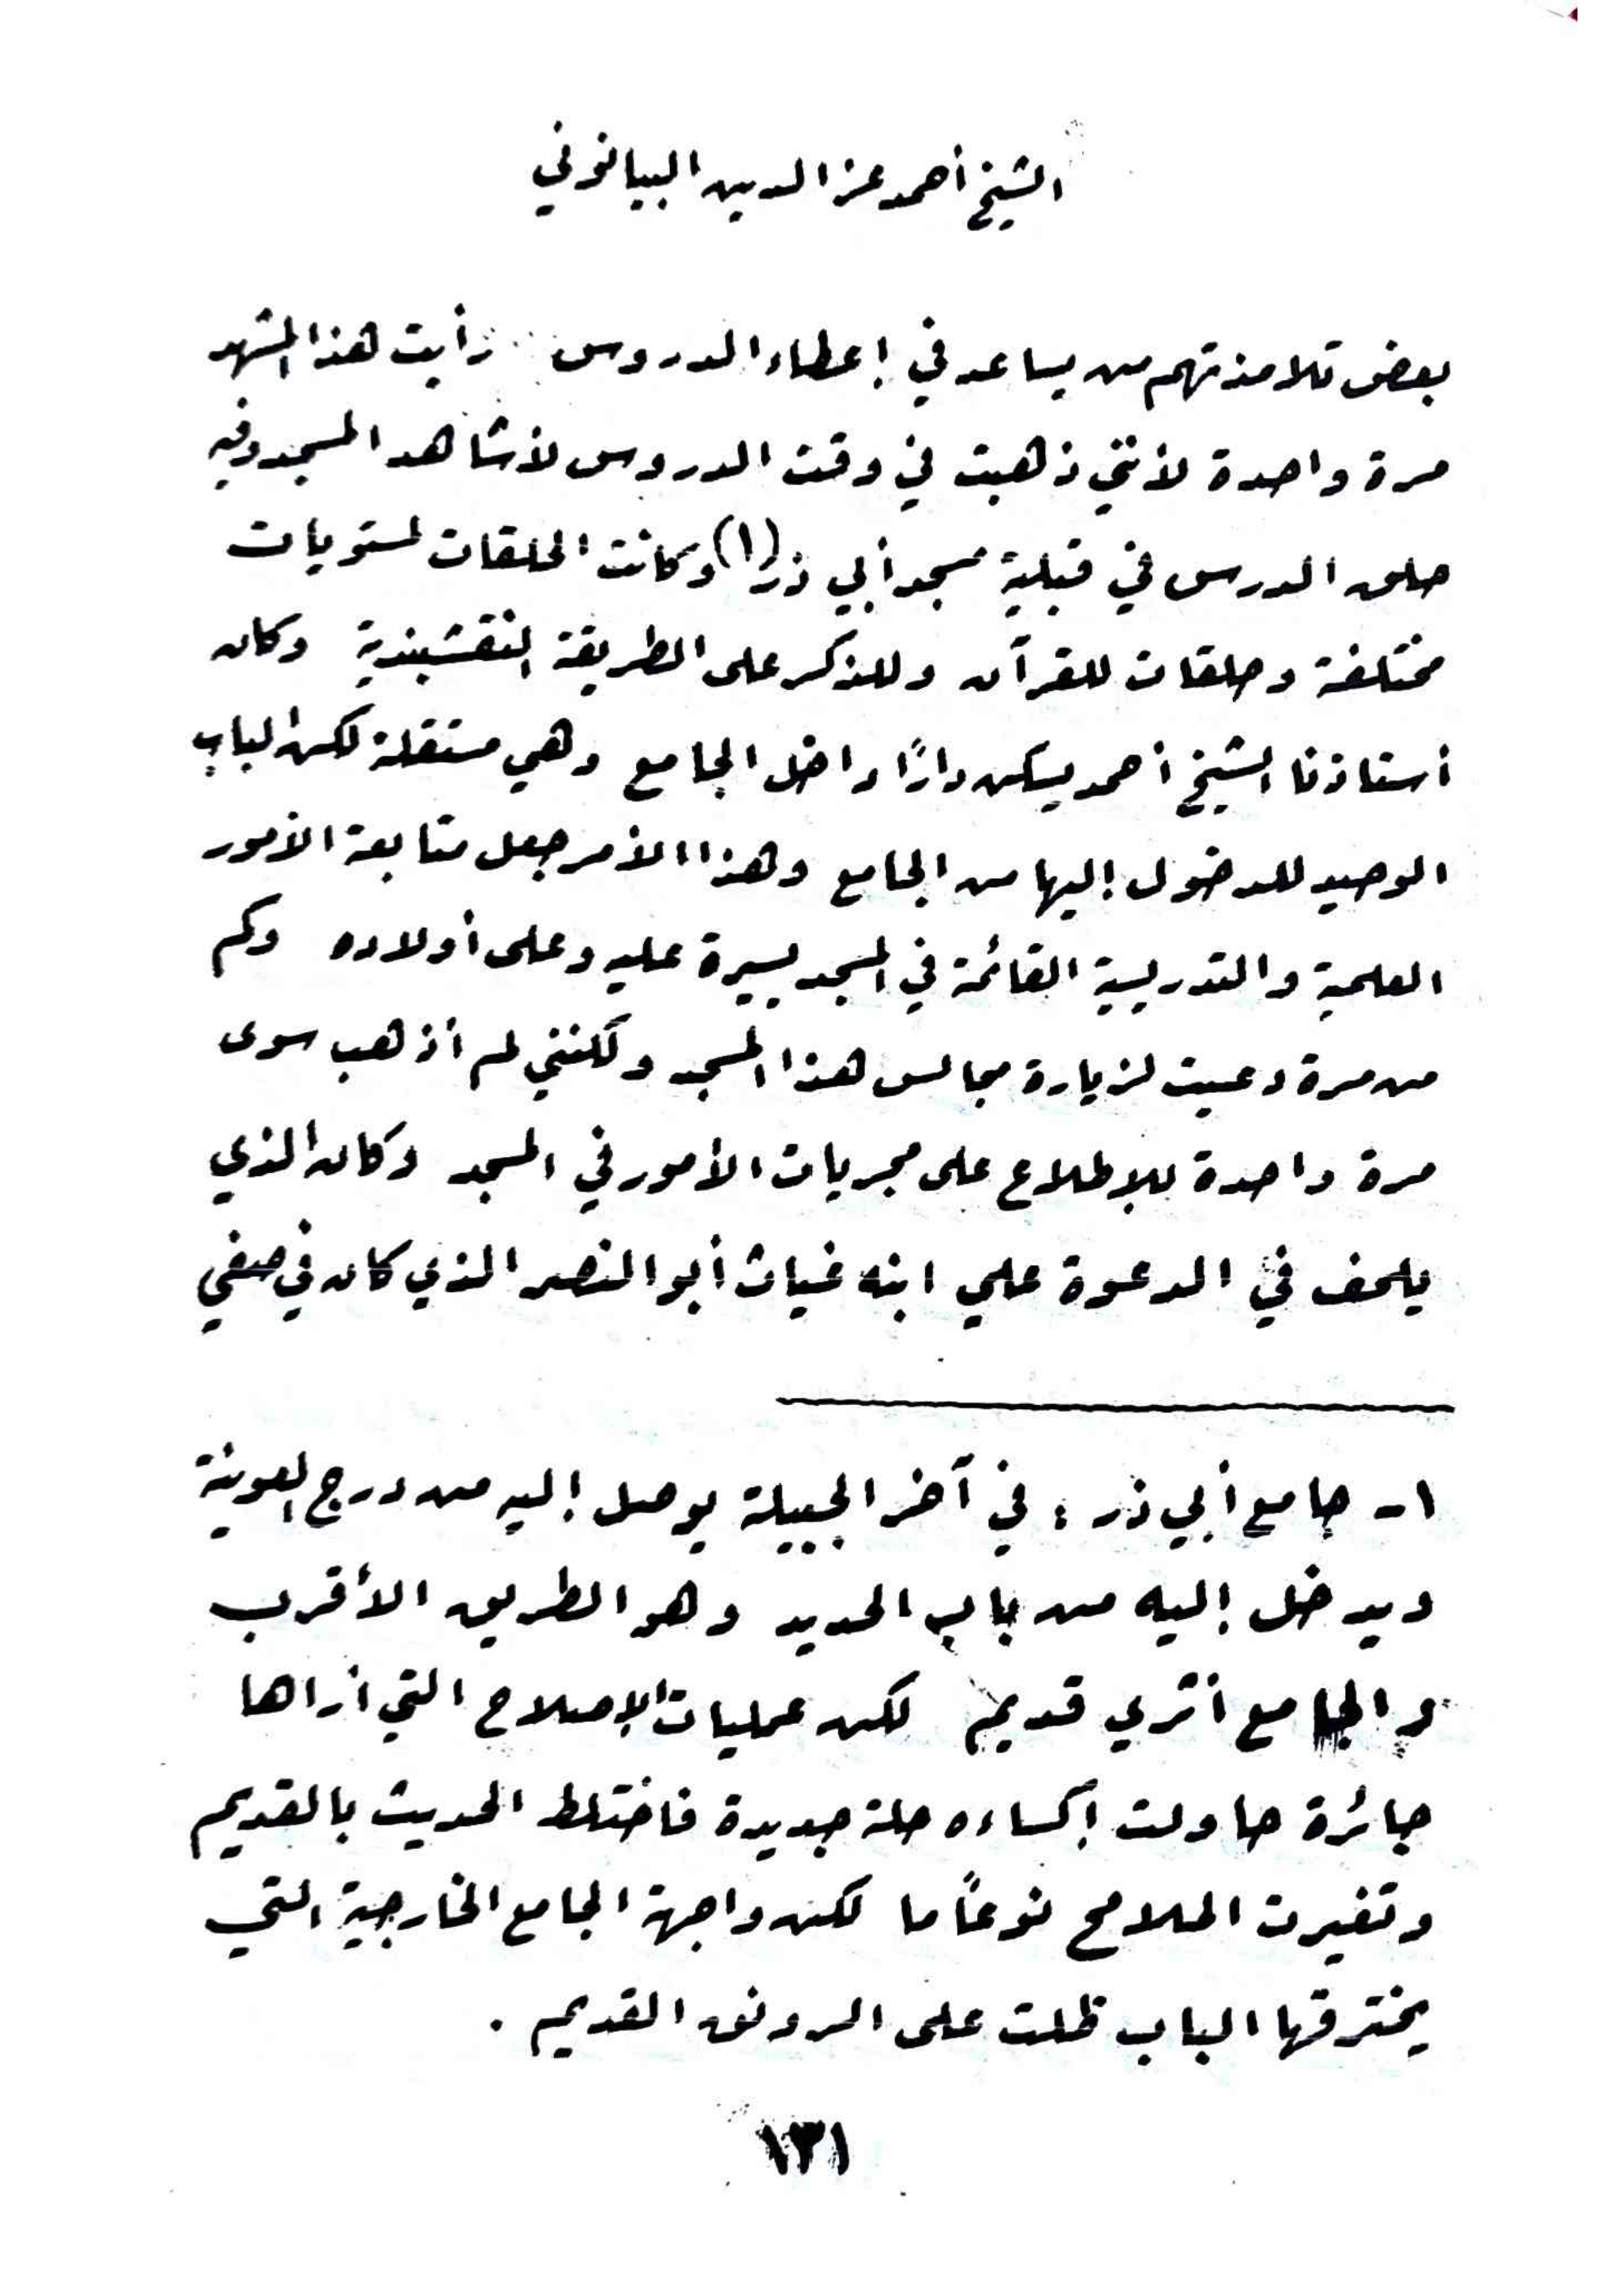 الشيخ أحمد عز الدين البيانوني
بعض تلامذتهم من يساعد في إعطاء الدروس رأيت هذا المشهد
مرة واحدة لأنني ذهبت في وقت الدروس لأشاهد المسجد وفيه
حلق الدرس في قبلية مسجد أبي ذر (١) وكانت الحلقات لمستويات
مختلفة وحلقات للقرآن وللذكر على الطريقة النقشبندية وكان
أستاذنا الشيخ أحمد يسكن دارًا داخل الجامع وهي مستقلة لكن الباب
الوحيد للدخول إليها من الجامع وهذا الأمر جعل متابعة الأمور
العلمية والتدريسية القائمة في المسجد يسيرة عليه وعلى أولاده وكم
من مرة دعيت لزيارة مجالس هذا المسجد ولكنني لم أذهب سوى
مرة واحدة للإطلاع على مجريات الأمور في المسجد وكان الذي
يلحف في الدعوة علي ابنه غياث أبو النصر الذي كان في صفي
١- جامع أبي ذر : في آخر الجبيلة يوصل إليه من درج العوينة
ويدخل إليه من باب الحديد وهو الطريق الأقرب
والجامع أثري قديم لكن عمليات الإصلاح التي أراها
جائرة حاولت إكساءه حلة جديدة فاختلط الحديث بالقديم
وتغيرت الملامح نوعًا ما لكن واجهة الجامع الخارجية التي
يخترقها الباب ظلت على الرونق القديم .
١٣١